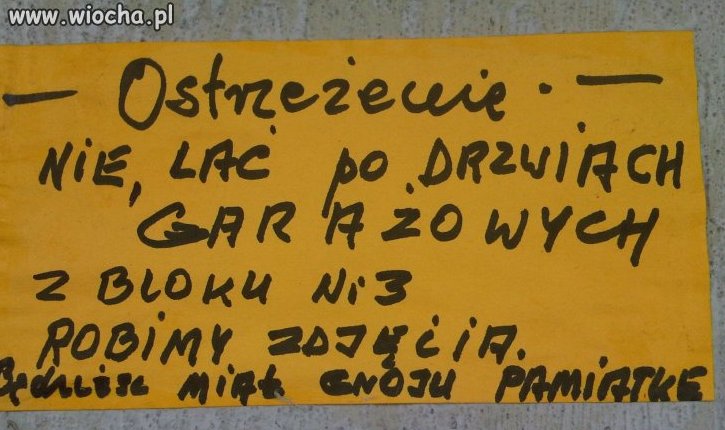 www.wiocha.pl
— Ostrzeżenię. —
NIE, LAĆ po DRZWIACH
GARAŻOWYCH
Z BLOKU Nr3
ROBIMY ZDJĘCIA.
Będziesz MIAŁ GNOJU PAMIATKĘ